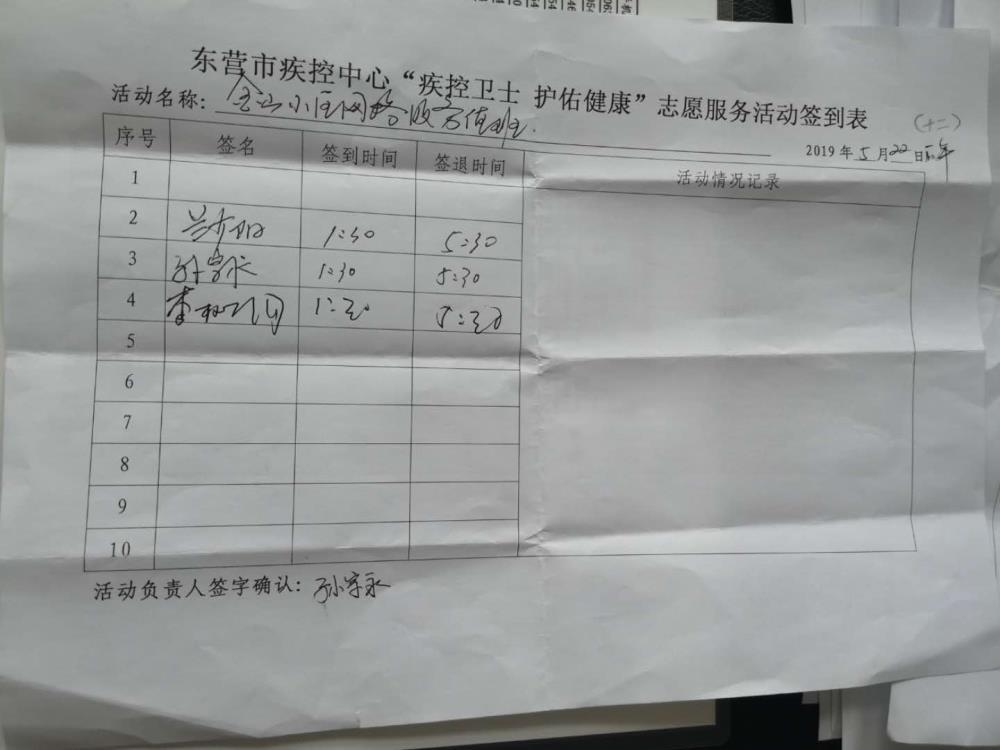 东营市疾控中心“疾控卫士 护佑健康”志愿服务活动签到表
活动名称：
(十二)
2019年5月22日
序号 签名 签到时间 签退时间 活动情况记录
1
2 1:30 5:30
3 1:30 5:30
4 1:30 5:30
5
6
7
8
9
10
活动负责人签字确认：孙字永